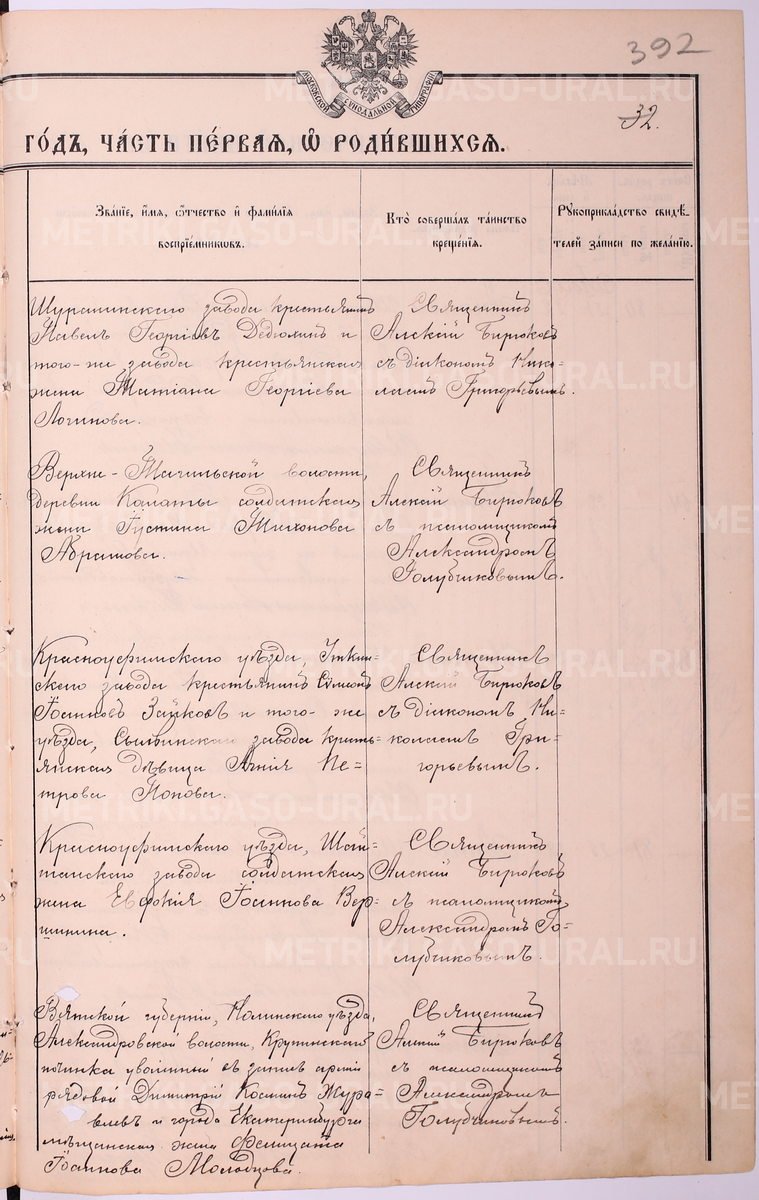 392
32.
МОСКОВСКОЙ СѴНОДАЛЬНОЙ ТИПОГРАФІИ
ГОДЪ, ЧАСТЬ ПЕРВАЯ, Ѿ РОДИВШИХСЯ.
Званіе, имя, ѻтчество и фамилія
воспріемниковъ.
Кто совершалъ таинство
крещенія.
Рукоприкладство свидѣ-
телей записи по желанію.
завода крестьянинъ
Павелъ Георгіевъ Дедюхинъ и
того-же завода крестьянская
жена Татіана Георгіева
Логинова.
Священникъ
Алексій Бирюковъ
съ діакономъ Нико-
лаемъ Григорьевымъ.
Верхне-Тагильской волости,
деревни Калаты солдатская
жена Іустина Тихонова
Абрамова.
Священникъ
Алексій Бирюковъ
съ псаломщикомъ
Александромъ
Голубчиковымъ.
Красноуфимскаго уѣзда, Уткин-
скаго завода крестьянинъ Сѵмеонъ
Іоанновъ Зайковъ и того-же
уѣзда, Сылвинскаго завода кресть-
янская дѣвица Агнія Пе-
трова Попова.
Священникъ
Алексій Бирюковъ
съ діакономъ Ни-
колаемъ Гри-
горьевымъ.
Красноуфимскаго уѣзда, Шай-
танскаго завода солдатская
жена Евдокія Іоаннова Вер-
шинина.
Священникъ
Алексій Бирюковъ
съ псаломщикомъ
Александромъ Го-
лубчиковымъ.
Вятской губерніи, Нолинскаго уѣзда,
Александровской волости,
починка уволенный въ запасъ арміи
рядовой Димитрій Косминъ Жура-
влевъ и города Екатеринбурга
мѣщанская жена Фелицата
Іоаннова Молодцова.
Священникъ
Алексій Бирюковъ
съ псаломщикомъ
Александромъ
Голубчиковымъ.
METRIKI.GASO-URAL.RU